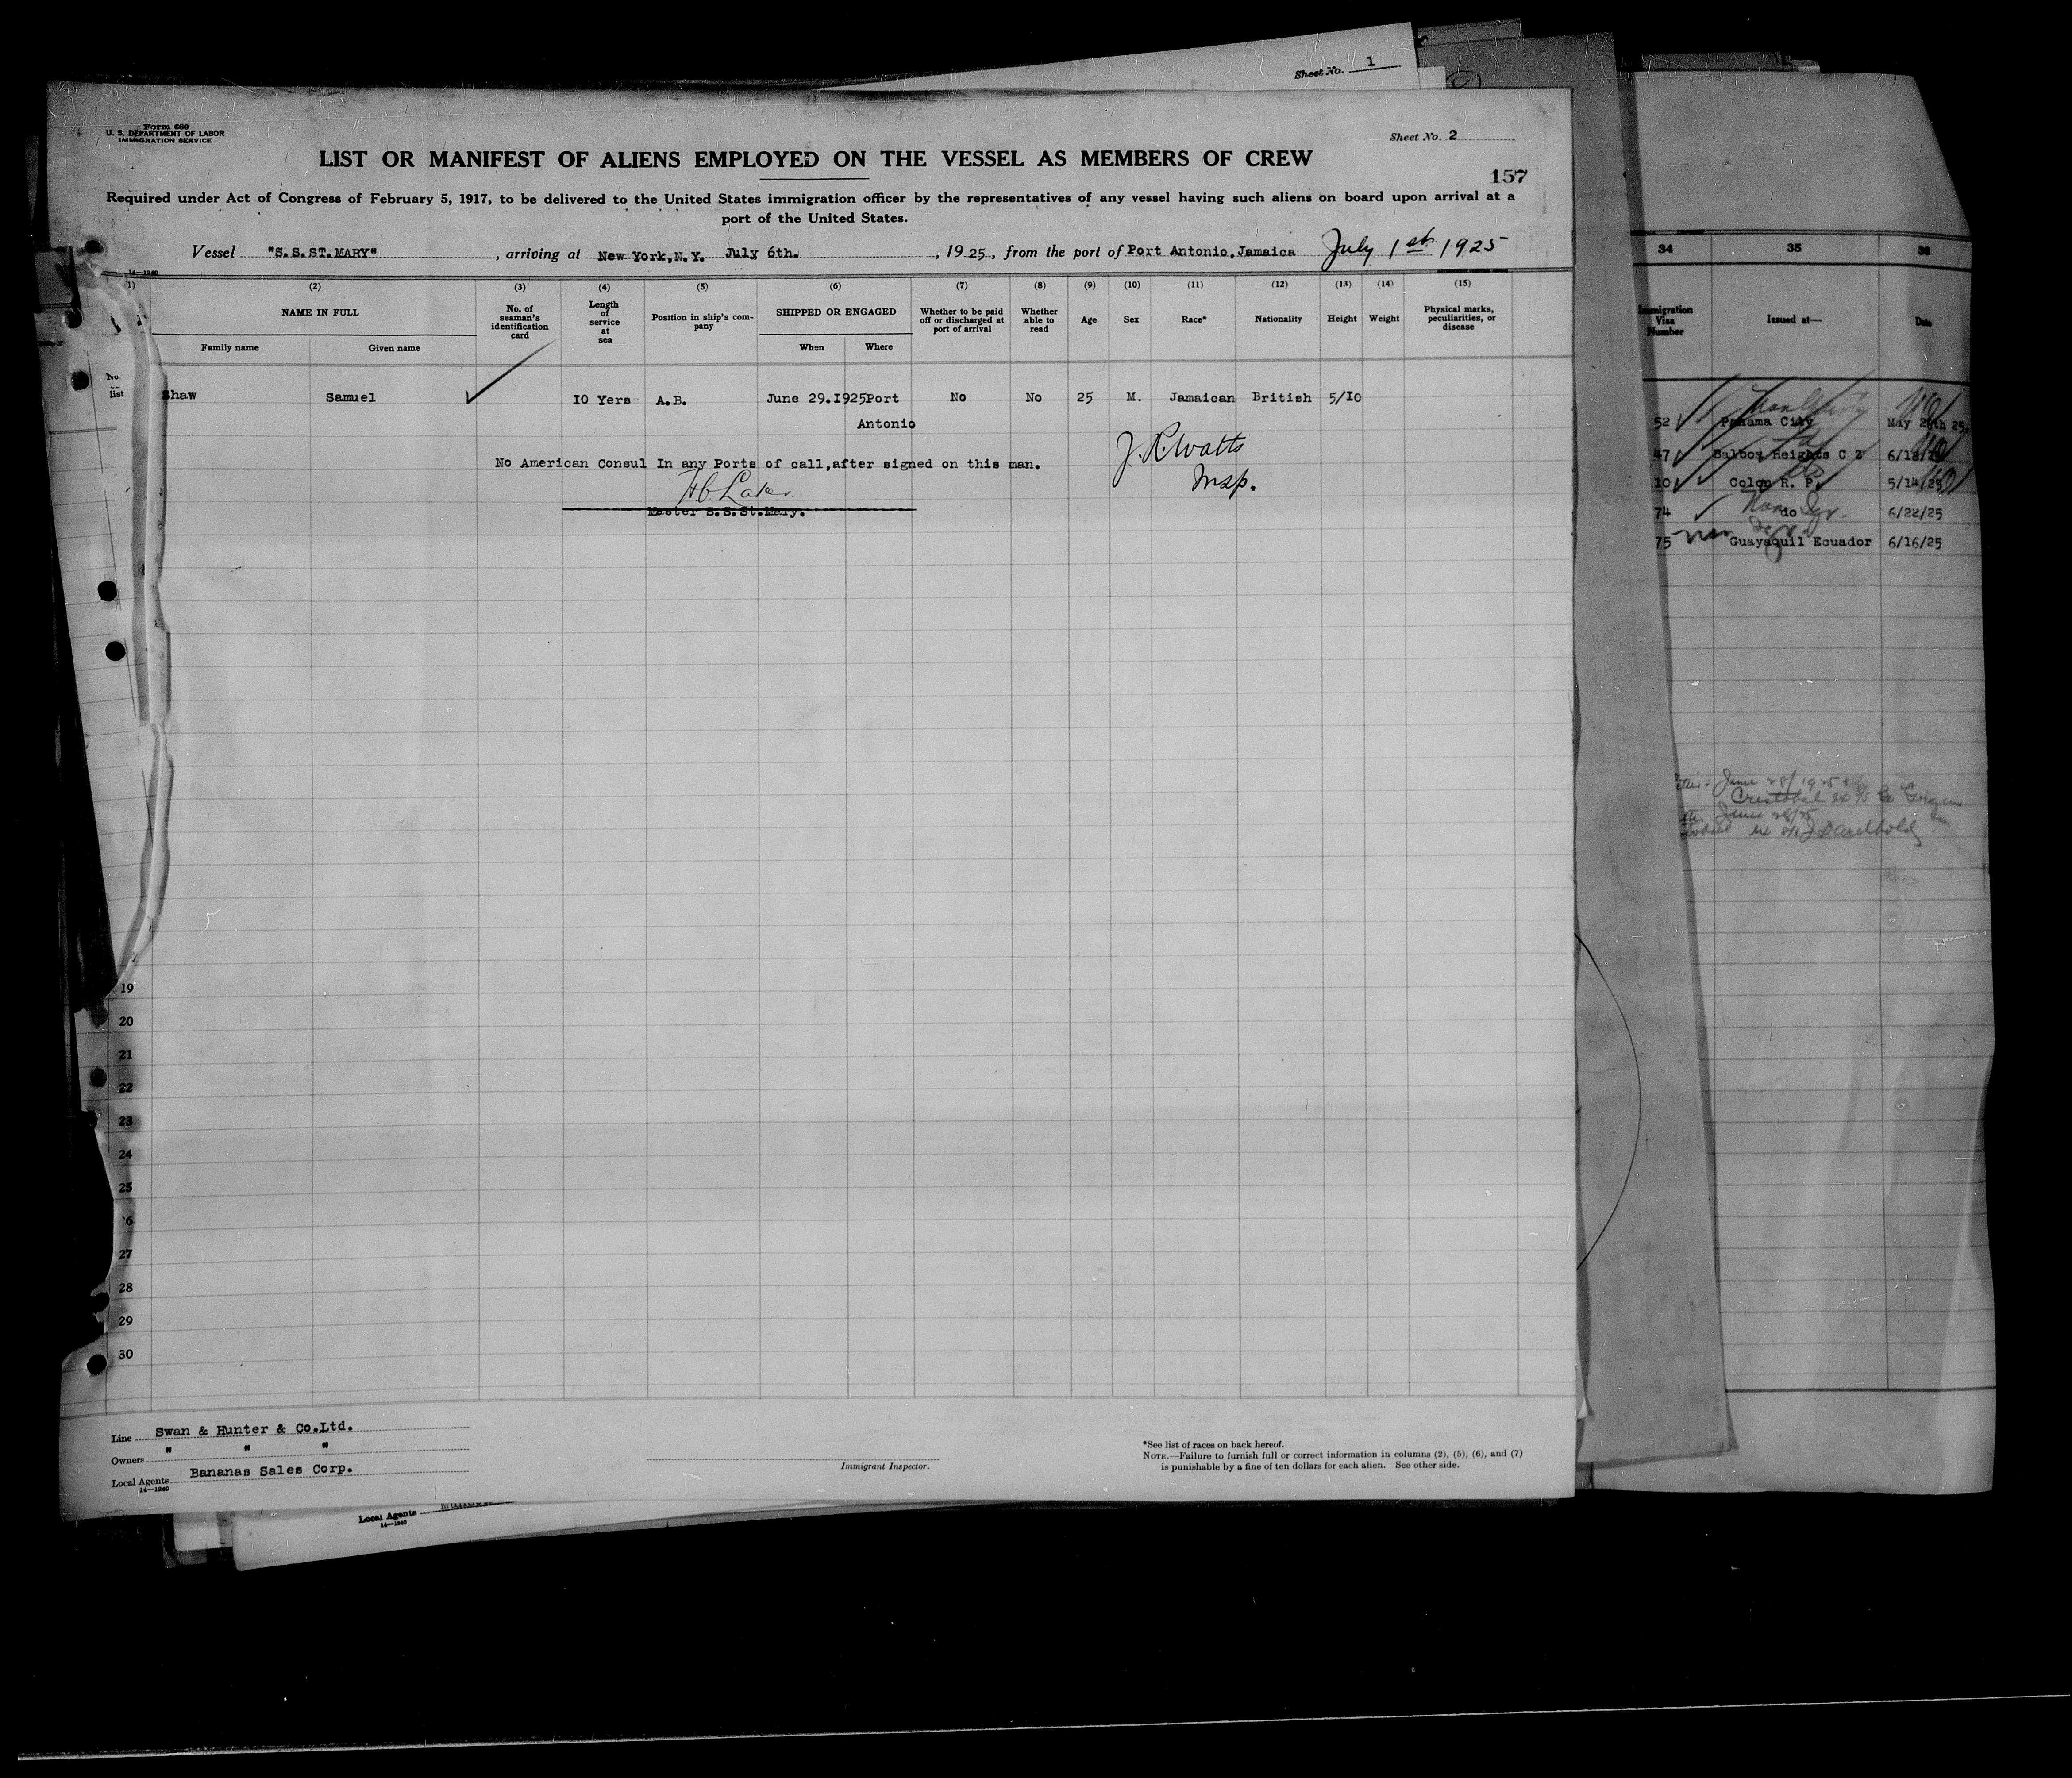 Sheet No. 1
Form 680
U. S. DEPARTMENT OF LABOR
IMMIGRATION SERVICE
Sheet No. 2
LIST OR MANIFEST OF ALIENS EMPLOYED ON THE VESSEL AS MEMBERS OF CREW
157
Required under Act of Congress of February 5, 1917, to be delivered to the United States immigration officer by the representatives of any vessel having such aliens on board upon arrival at a
port of the United States.
Vessel "S.S.ST.MARY" , arriving at New York,N.Y. July 6th. , 1925, from the port of Port Antonio,Jamaica July 1st 1925
14—1240
(1) (2) (3) (4) (5) (6) (7) (8) (9) (10) (11) (12) (13) (14) (15)
No. list
NAME IN FULL
Family name Given name
No. of seaman's identification card
Length of service at sea
Position in ship's company
SHIPPED OR ENGAGED
When Where
Whether to be paid off or discharged at port of arrival
Whether able to read
Age Sex Race* Nationality Height Weight
Physical marks, peculiarities, or disease
Shaw Samuel 10 Yers A.B. June 29.1925 Port No No 25 M. Jamaican British 5/10
Antonio
No American Consul In any Ports of call,after signed on this man.
J. R. Watts
Insp.
Master S.S.St.Mary.
19
20
21
22
23
24
25
26
27
28
29
30
Line Swan & Hunter & Co.Ltd.
Owners " " "
Local Agents Bananas Sales Corp.
14—1240
Immigrant Inspector.
*See list of races on back hereof.
NOTE.—Failure to furnish full or correct information in columns (2), (5), (6), and (7)
is punishable by a fine of ten dollars for each alien. See other side.
Local Agents
14—1240
34 35 36
Immigration Visa Number
Issued at—
Date
52 Panama City May 26th 25
47 Balboa Heights C Z 6/18/25
10 Colon R. P. 5/14/25
74 do 6/22/25
75 Guayaquil Ecuador 6/16/25
June 28/1925
Cristobal
June 28/25